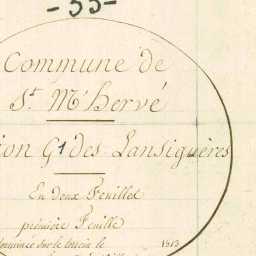 -33-
Commune de
St. M'Hervé
ion G1 des Lansiguères
En deux Feuilles
première Feuille
sur le terrein le 1813